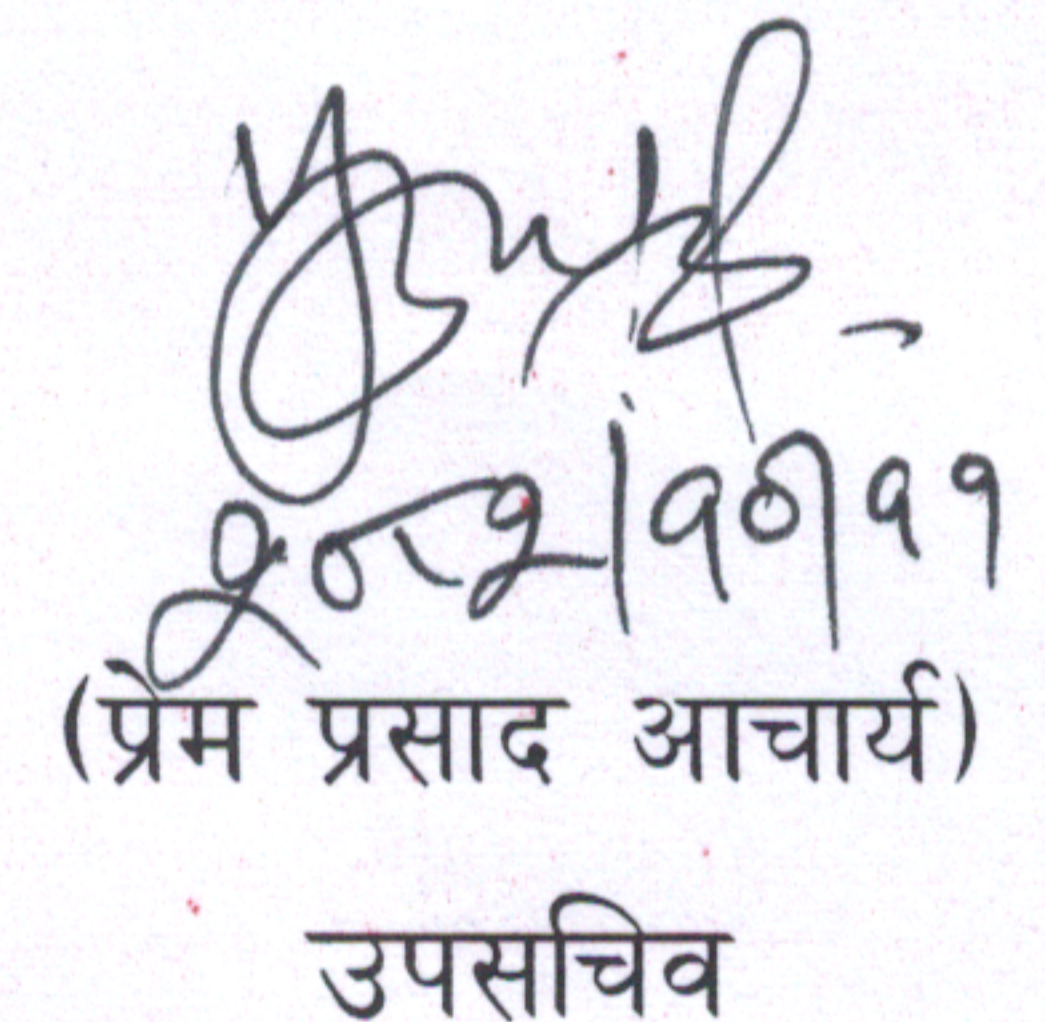 २०८२।१०।११
(प्रेम प्रसाद आचार्य)
उपसचिव